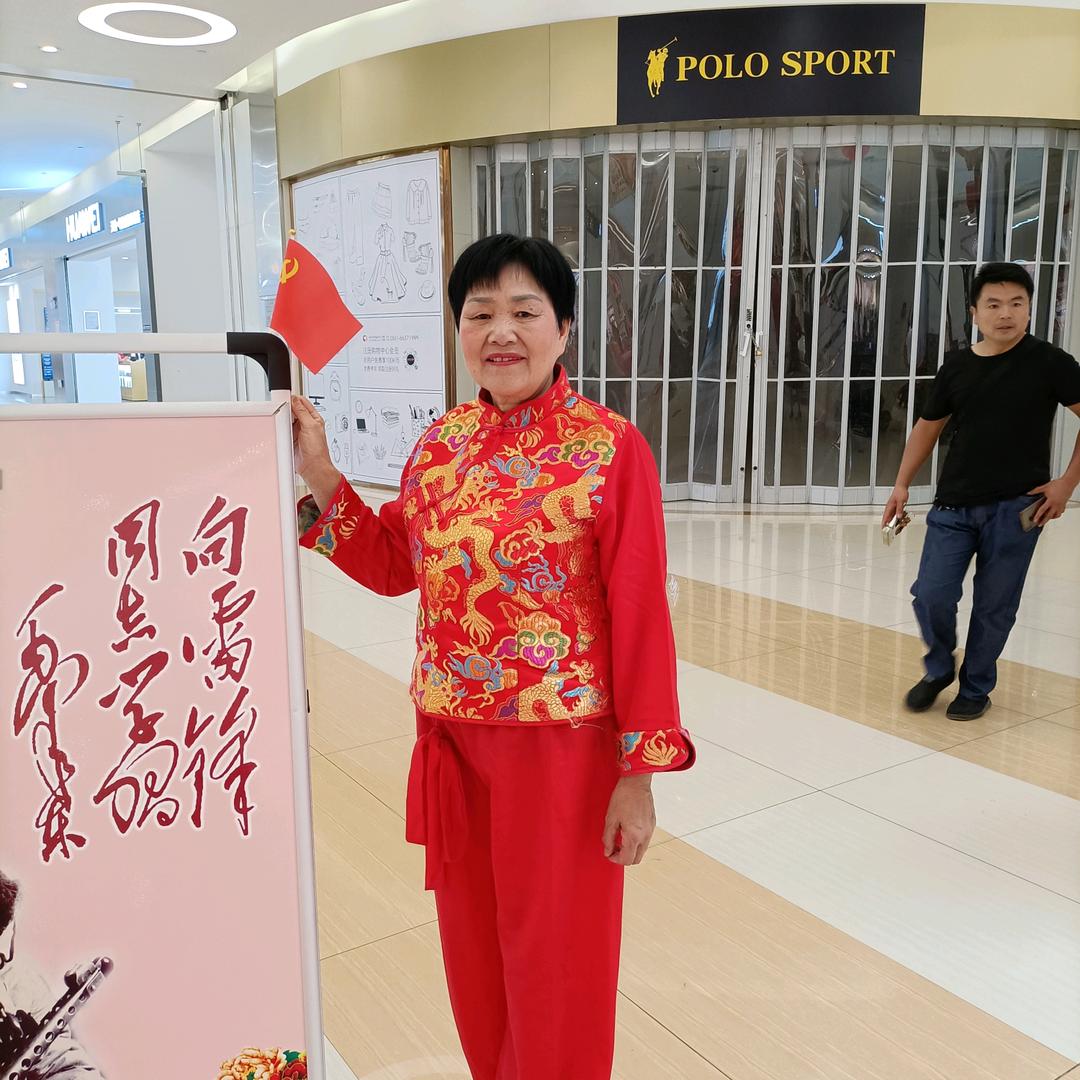 POLO SPORT
HUAWEI
向雷锋
同志学习
毛泽东